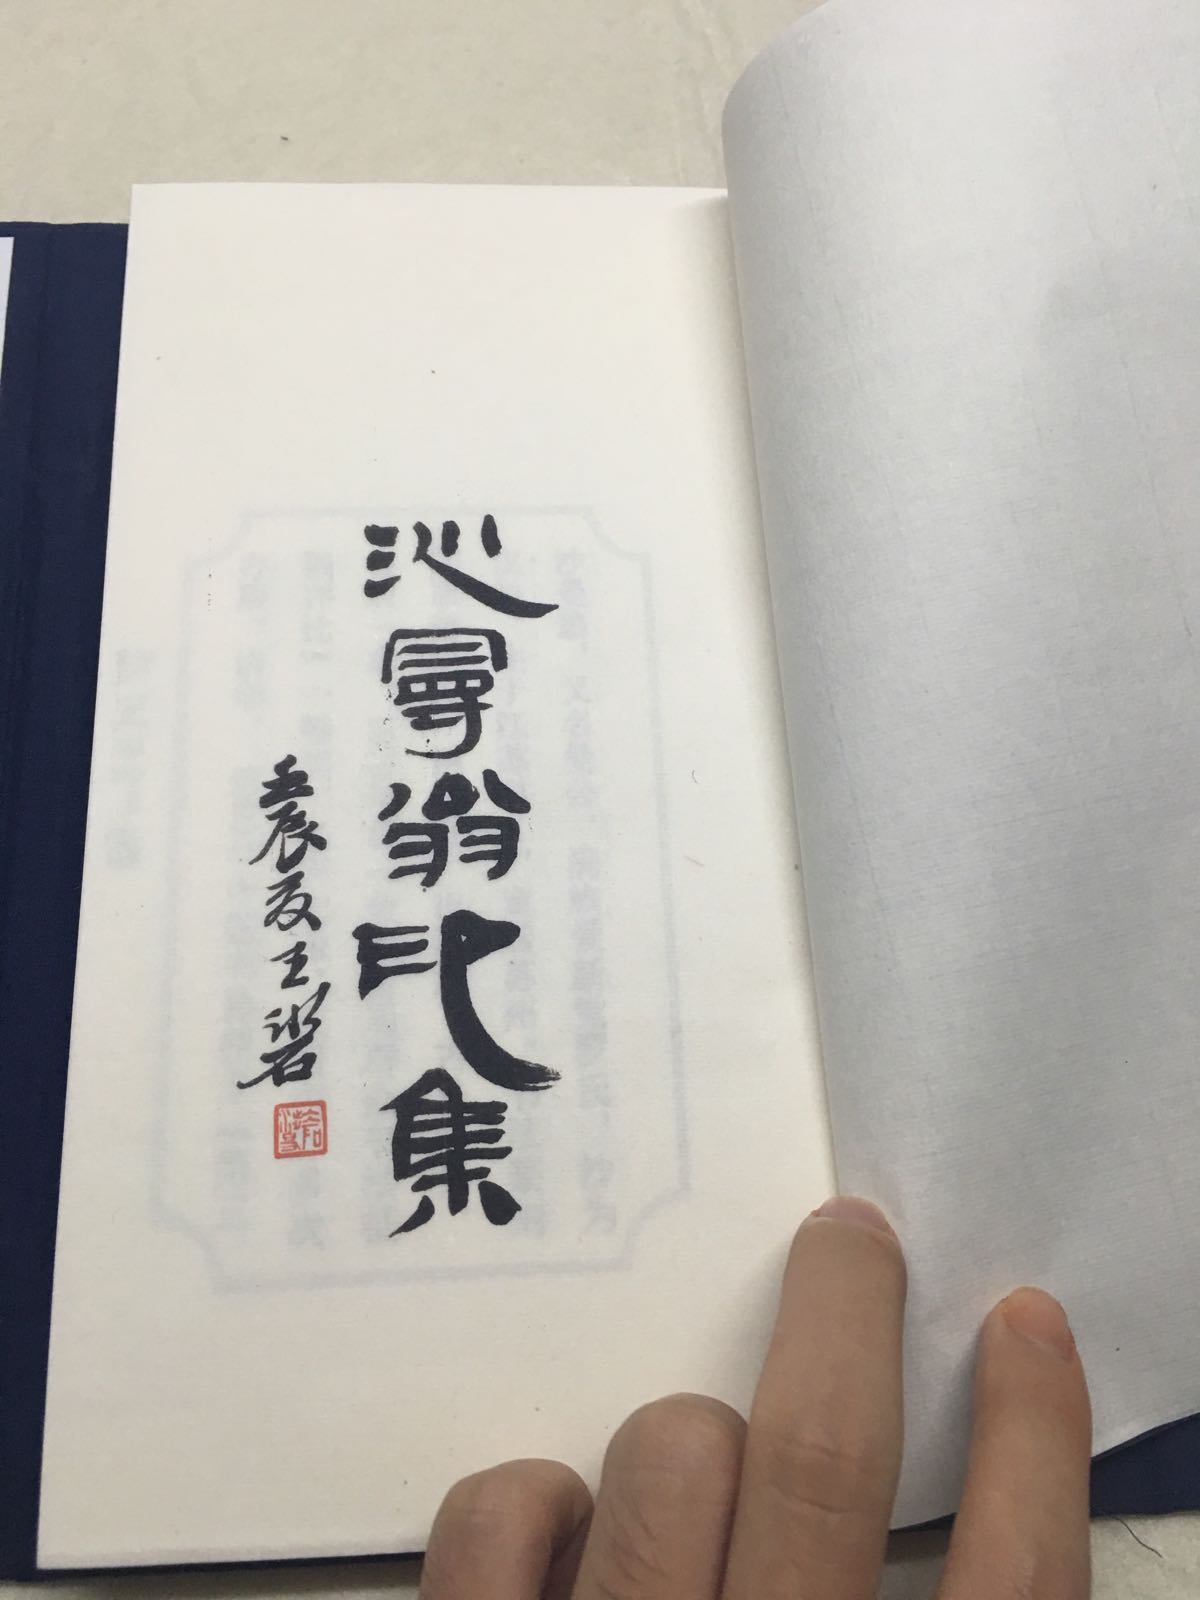 沁翁印集
壬辰夏王